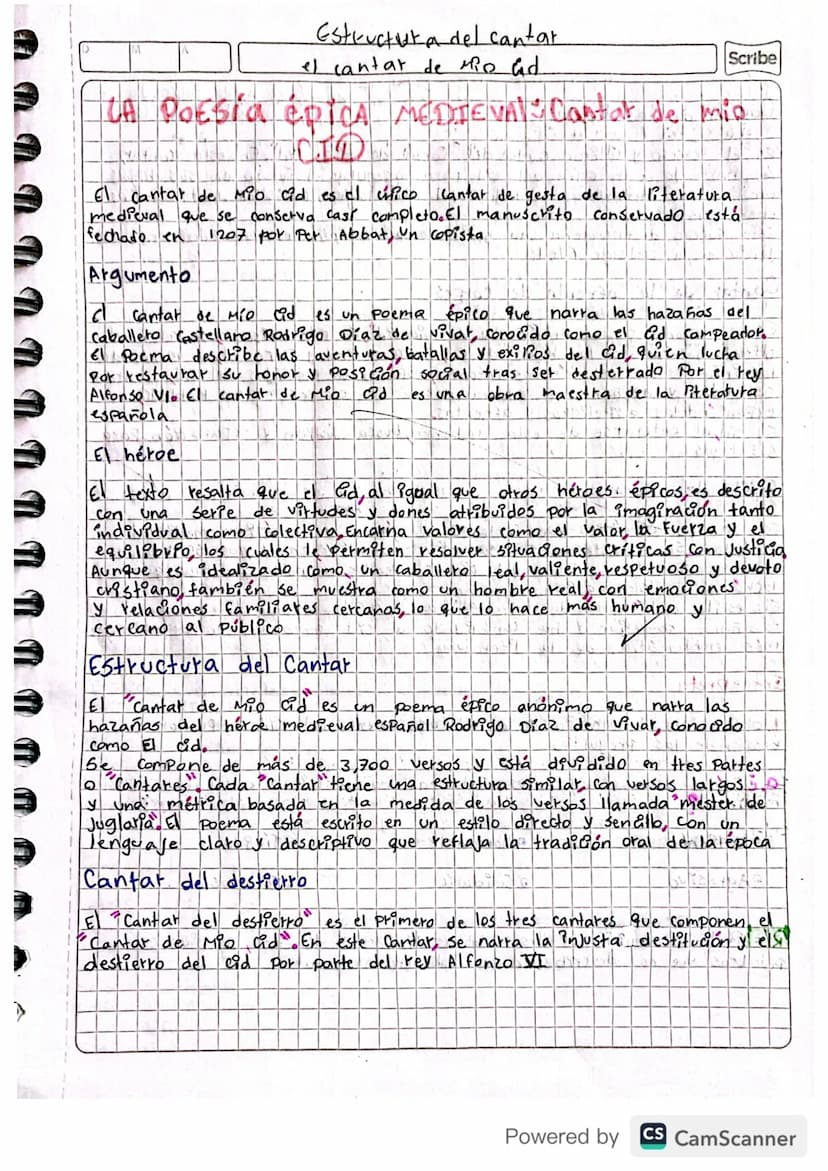 Estructura del cantar
D M A
el cantar de Mio Cid
Scribe
LA POESía épICA MEDIEVAL: Cantar de mio
CID
El cantar de Mio Cid es el único cantar de gesta de la literatura
medieval que se conserva casi completo. El manuscrito conservado está
fechado en 1207 por Per Abbat, un copista
Argumento
El cantar de Mío Cid es un poema épico que narra las hazañas del
caballero Castellano Rodrigo Díaz de Vivar, conocido como el Cid Campeador.
El Poema describe las aventuras, batallas y exilios del Cid, quien lucha
por restaurar su honor y posición social tras ser desterrado Por el rey
Alfonso VI. El cantar de Mio Cid es una obra maestra de la literatura
española
El héroe
El texto resalta que el Cid, al igual que otros héroes épicos, es descrito
con una serie de virtudes y dones atribuidos por la imaginación tanto
individual como colectiva, Encarna valores como el valor, la Fuerza y el
equilibrio, los cuales le permiten resolver situaciones críticas con Justicia
Aunque es idealizado como un caballero leal, valiente, respetuoso y devoto
cristiano, también se muestra como un hombre real, con emociones
y relaciones familiares cercanas, lo que lo hace más humano y
cercano al público
Estructura del Cantar
El "Cantar de Mio Cid" es un poema épico anónimo que narra las
hazañas del héroe medieval español Rodrigo Díaz de Vivar, conocido
como El Cid.
Se compone de más de 3,700 versos y está dividido en tres Partes
o "Cantares". Cada "Cantar" tiene una estructura similar, con versos largos
y una métrica basada en la medida de los versos llamada "mester de
Juglaria". El poema está escrito en un estilo directo y sencillo, con un
lenguaje claro y descriptivo que reflaja la tradición oral de la época
Cantar del destierro
El "Cantar del destierro" es el primero de los tres cantares que componen el
"Cantar de Mio Cid". En este Cantar, se narra la injusta destitución y el
destierro del Cid por parte del rey Alfonzo VI
Powered by CS CamScanner